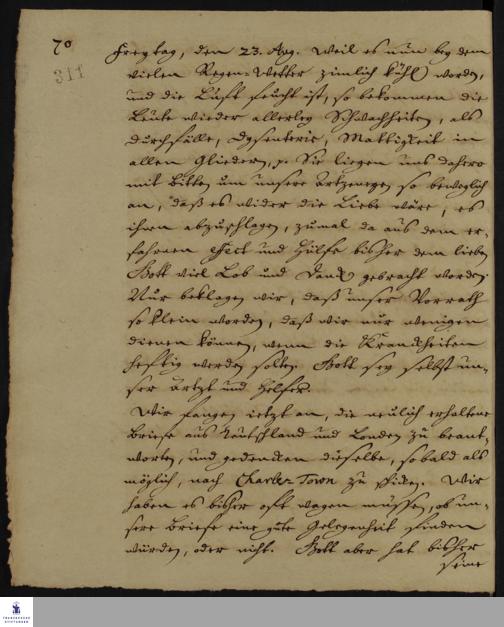 70
311
Freytag, den 23. Aug. Weil es nun bey dem
vielen Regen-Wetter zimlich kühl worden,
und die Luft feucht ist, so bekommen die
Leute wieder allerley Schwachheiten, als
Durchfälle, Dysenterie, Mattigkeit in
allen Gliedern, p. Sie liegen uns dahero
mit Bitten um unsere Artzeneyen so beweglich
an, daß es wider die Liebe wäre, es
ihnen abzuschlagen, zumal da aus dem er-
fahrnen effect und Hülfe bisher dem lieben
Gott viel Lob und Danck gebracht worden.
Nur beklagen wir, daß unser Vorrath
so klein worden, daß wir nur wenigen
dienen können, wenn die Kranckheiten
heftig werden solten. Gott sey selbst un-
ser Artzt und Helfer.
Wir fangen ietzt an, die neulich erhaltene
Briefe aus Teutschland und London zu beant-
worten, und gedencken dieselbe, so bald als
möglich, nach Charles-Town zu schicken. Wir
haben es bisher oft wagen müssen, ob un-
sere Briefe eine gute Gelegenheit finden
würden, oder nicht. Gott aber hat bisher
seine
FRANCKESCHE
STIFTUNGEN